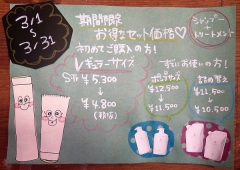 3/1
~
3/31
期間限定
お得なセット価格♡
シャンプー
トリートメント
初めてご購入の方!
レギュラーサイズ
Sサイズ
¥5.300
↓
¥4.800
(税抜)
すでにお使いの方!
ポンプサイズ
¥12.500
↓
¥11.500
詰め替え
¥11.500
↓
¥10.500